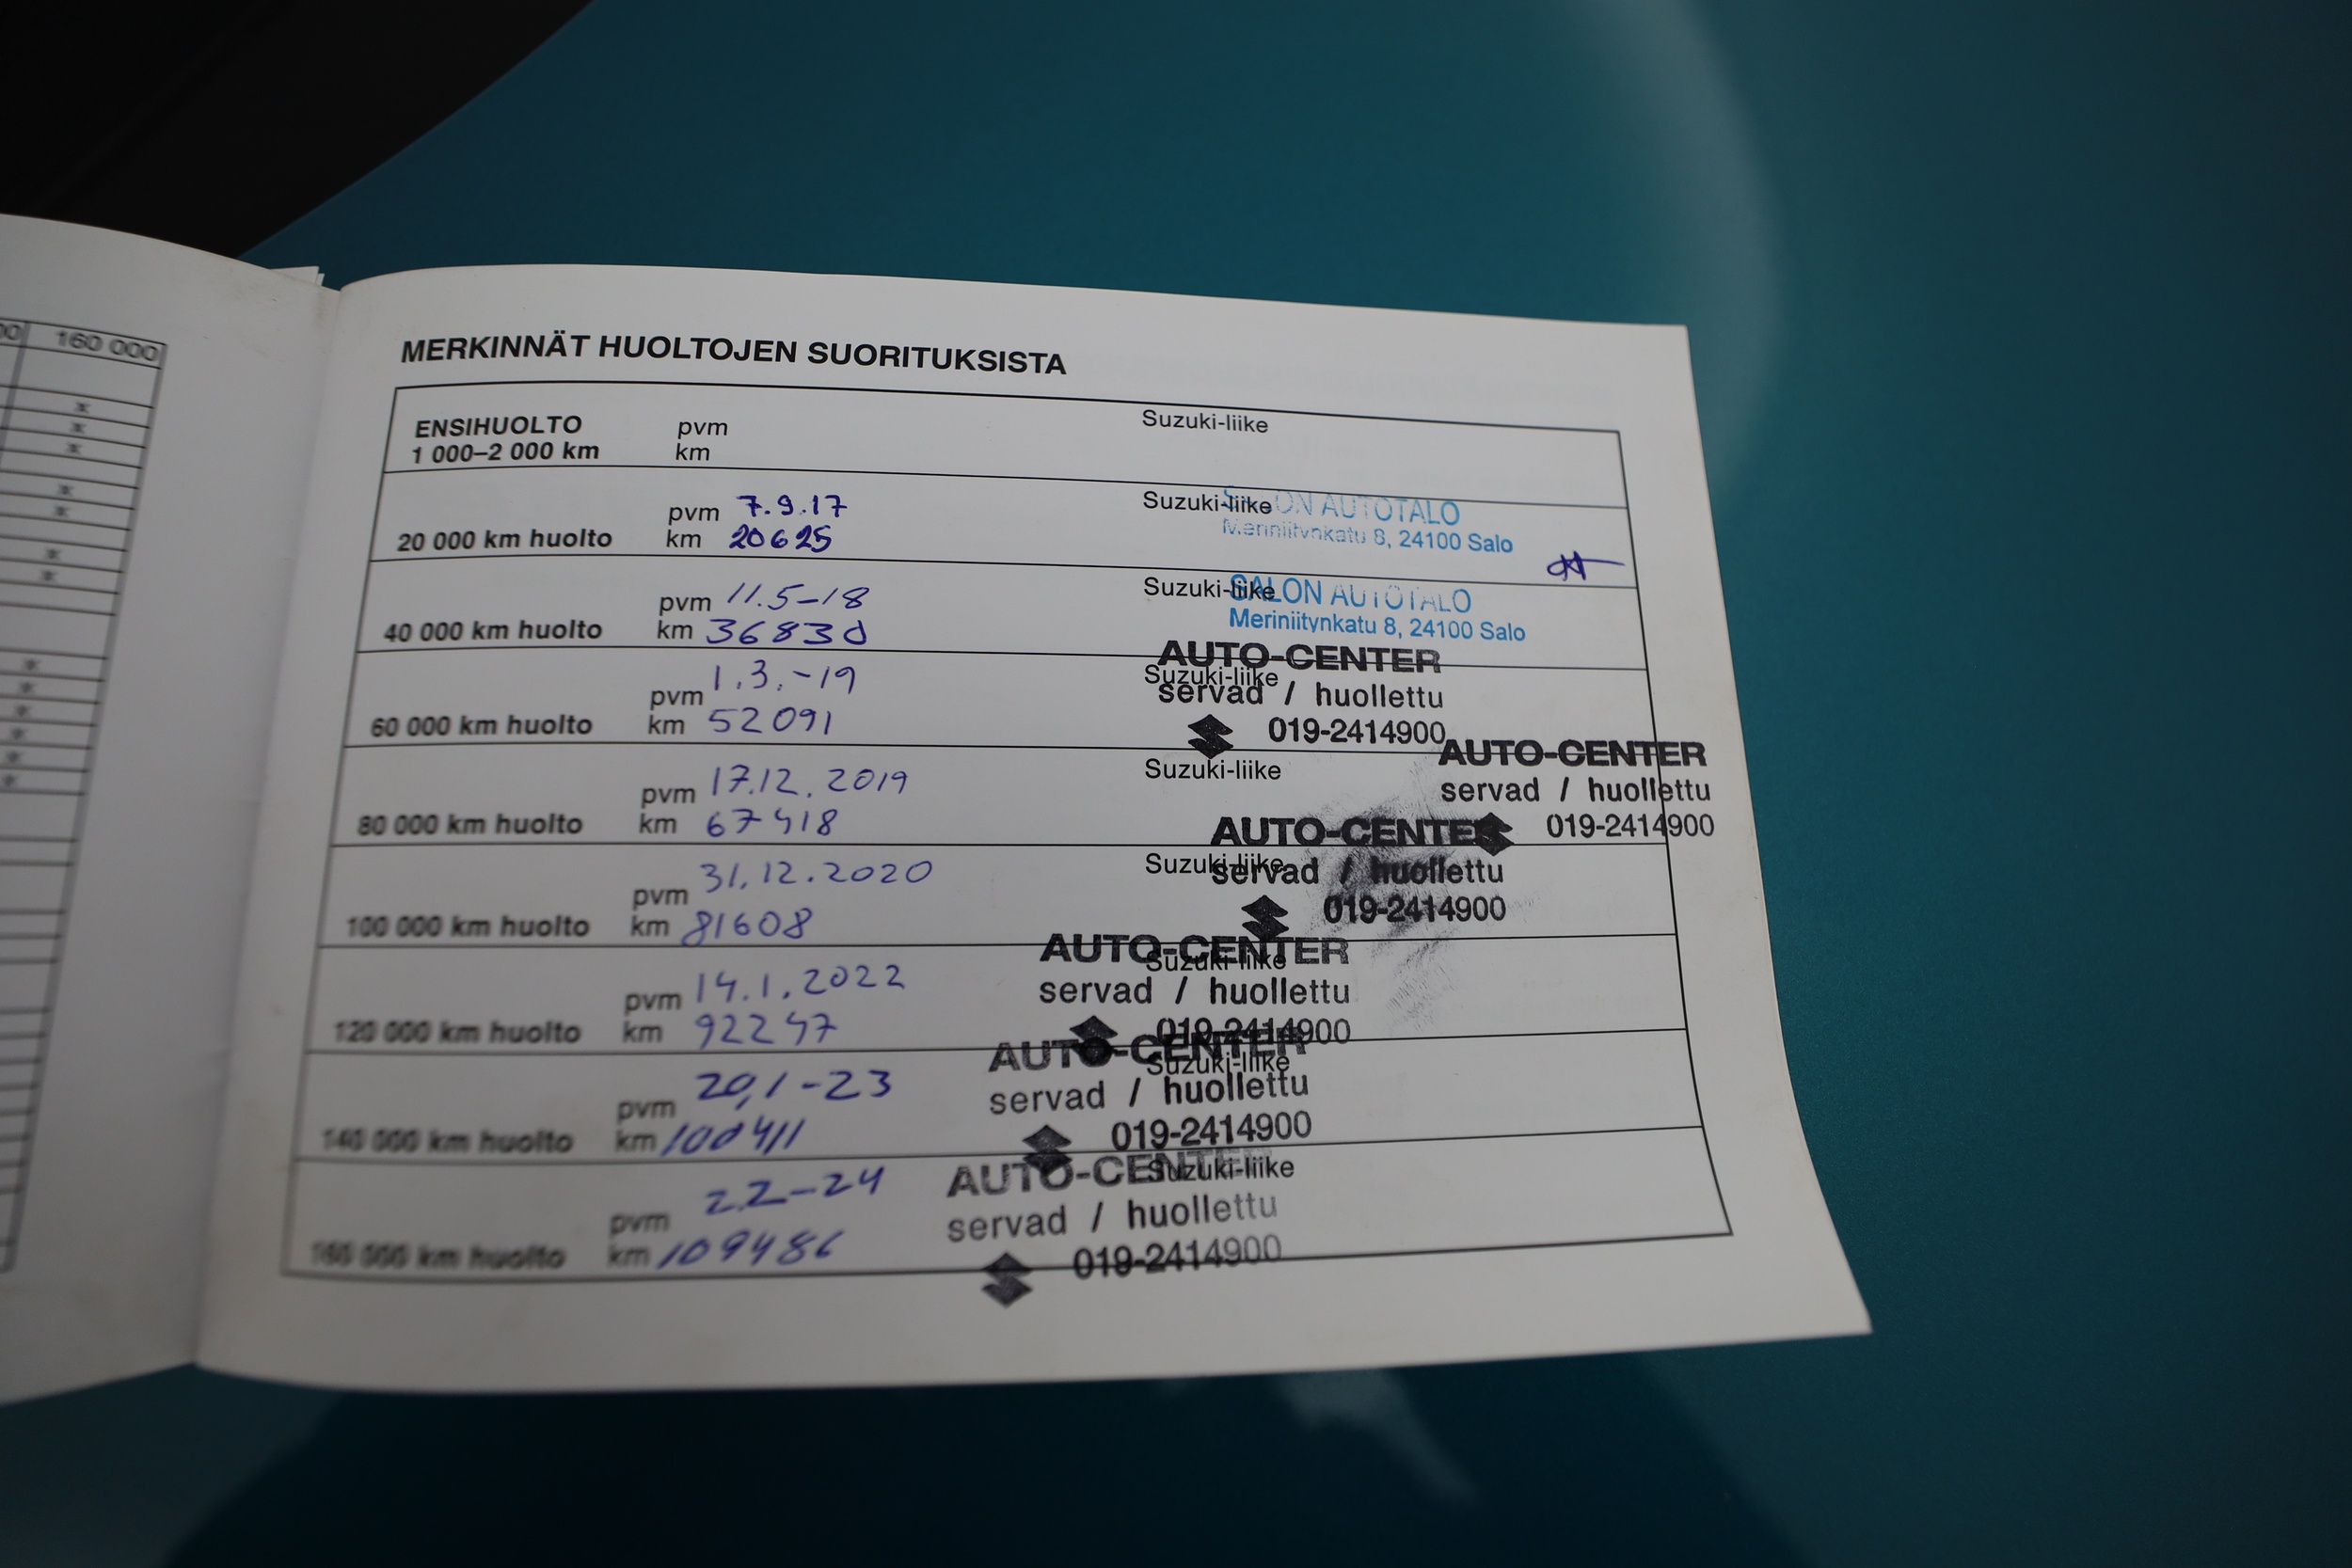 160 000
MERKINNÄT HUOLTOJEN SUORITUKSISTA
ENSIHUOLTO pvm Suzuki-liike
1 000–2 000 km km
pvm 7.9.17 Suzuki-liike SALON AUTOTALO
20 000 km huolto km 20625 Meriniitynkatu 8, 24100 Salo
pvm 11.5-18 Suzuki-liike SALON AUTOTALO
40 000 km huolto km 36830 Meriniitynkatu 8, 24100 Salo
AUTO-CENTER
pvm 1.3.-19 Suzuki-liike servad / huollettu
60 000 km huolto km 52091 019-2414900
AUTO-CENTER
pvm 17.12.2019 Suzuki-liike servad / huollettu
80 000 km huolto km 67418 019-2414900
AUTO-CENTER
pvm 31.12.2020 Suzuki-liike servad / huollettu
100 000 km huolto km 81608 019-2414900
AUTO-CENTER
pvm 14.1.2022 Suzuki-liike servad / huollettu
120 000 km huolto km 92247 019-2414900
AUTO-CENTER
pvm 20,1-23 Suzuki-liike servad / huollettu
140 000 km huolto km 100411 019-2414900
AUTO-CENTER
pvm 2.2-24 Suzuki-liike servad / huollettu
160 000 km huolto km 109486 019-2414900